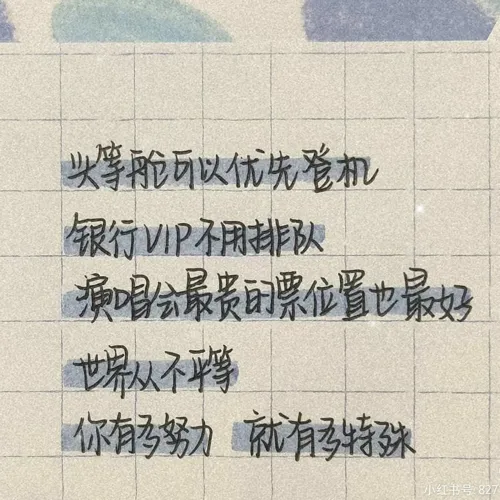 头等舱可以优先登机
银行VIP不用排队
演唱会最贵的票位置也最好
世界从不平等
你有多努力 就有多特殊
小红书号:827